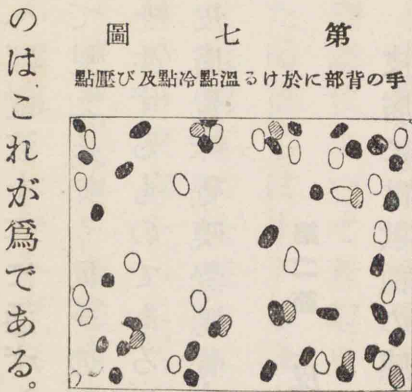 第七圖
手の背部に於ける溫點冷點及び壓點
のは、これが爲である。